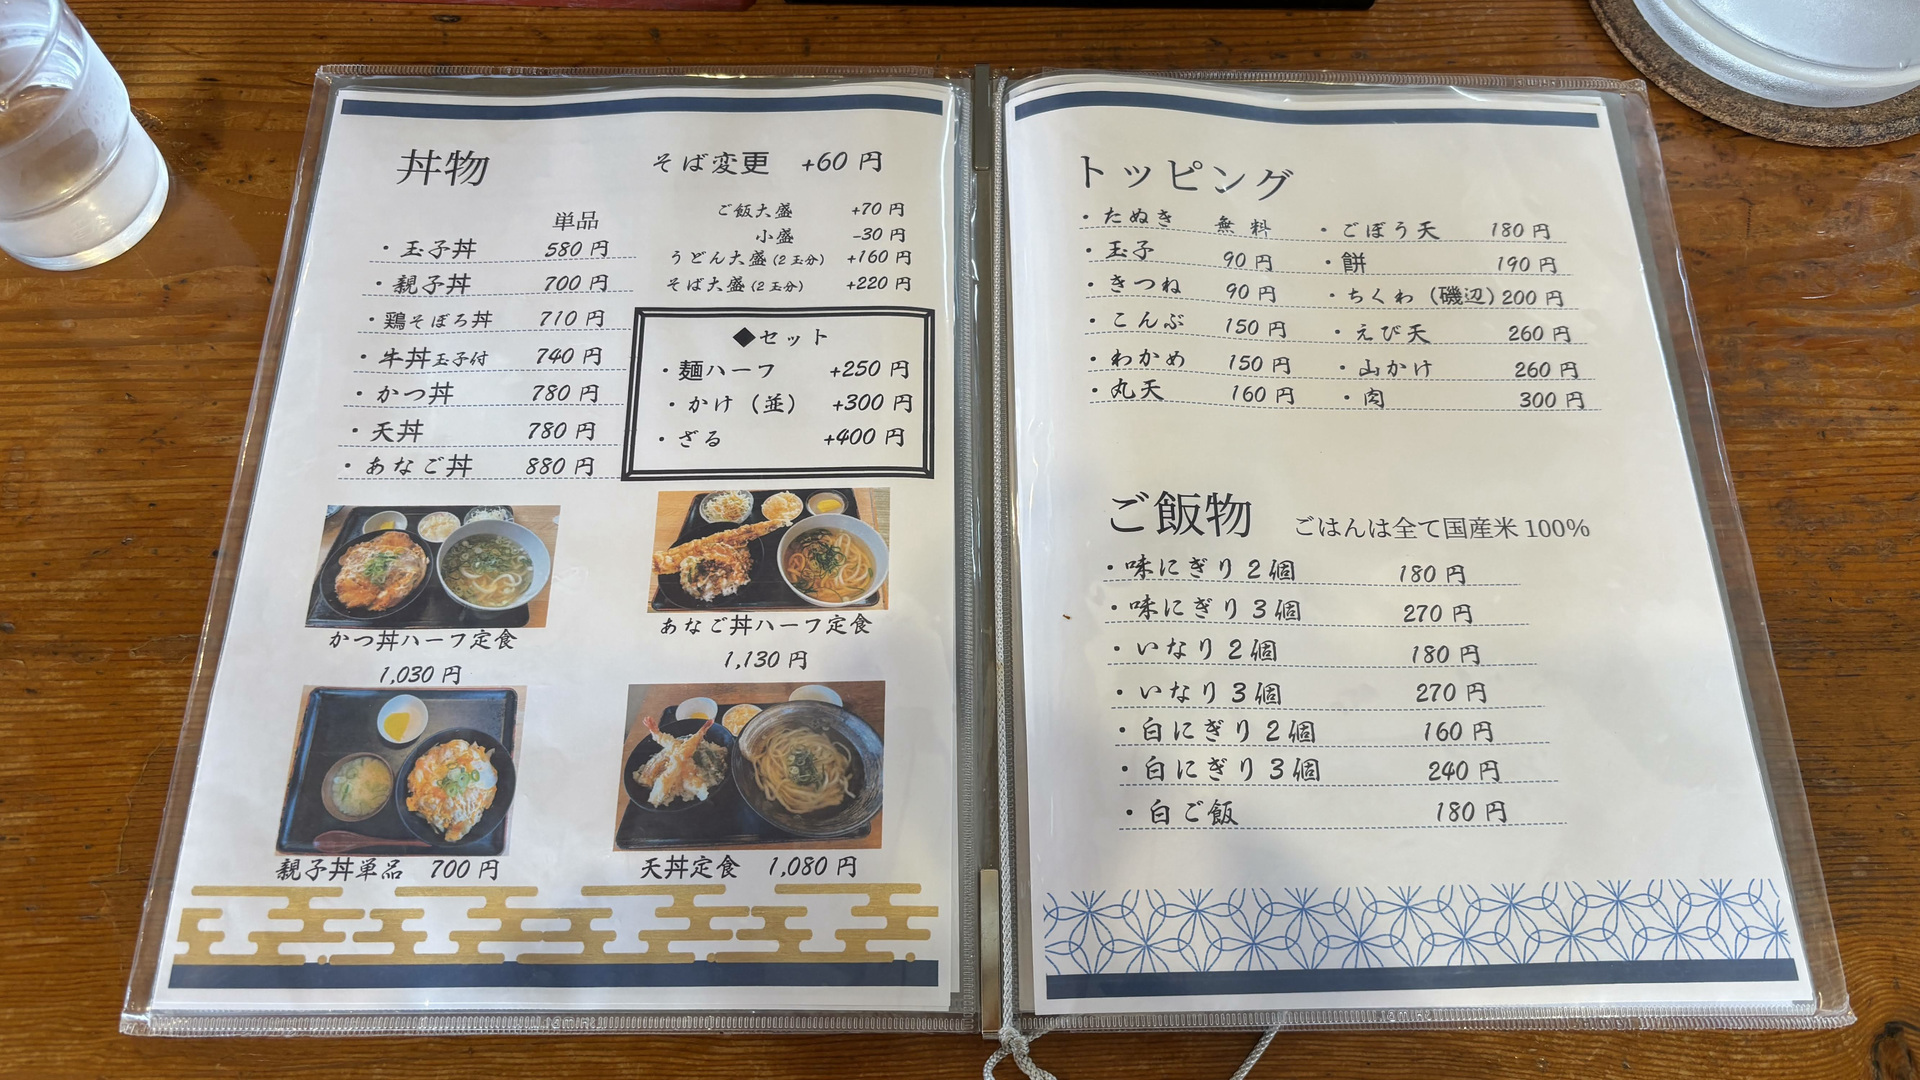 丼物
そば変更 +60 円
単品
・玉子丼 580 円
・親子丼 700 円
・鶏そぼろ丼 710 円
・牛丼玉子付 740 円
・かつ丼 780 円
・天丼 780 円
・あなご丼 880 円
ご飯大盛 +70 円
小盛 -30 円
うどん大盛(2玉分) +160 円
そば大盛(2玉分) +220 円
◆セット
・麺ハーフ +250 円
・かけ（並） +300 円
・ざる +400 円
かつ丼ハーフ定食
1,030 円
あなご丼ハーフ定食
1,130 円
親子丼単品 700 円
天丼定食 1,080 円
トッピング
・たぬき 無料
・玉子 90 円
・きつね 90 円
・こんぶ 150 円
・わかめ 150 円
・丸天 160 円
・ごぼう天 180 円
・餅 190 円
・ちくわ（磯辺）200 円
・えび天 260 円
・山かけ 260 円
・肉 300 円
ご飯物 ごはんは全て国産米 100%
・味にぎり2個 180 円
・味にぎり3個 270 円
・いなり2個 180 円
・いなり3個 270 円
・白にぎり2個 160 円
・白にぎり3個 240 円
・白ご飯 180 円